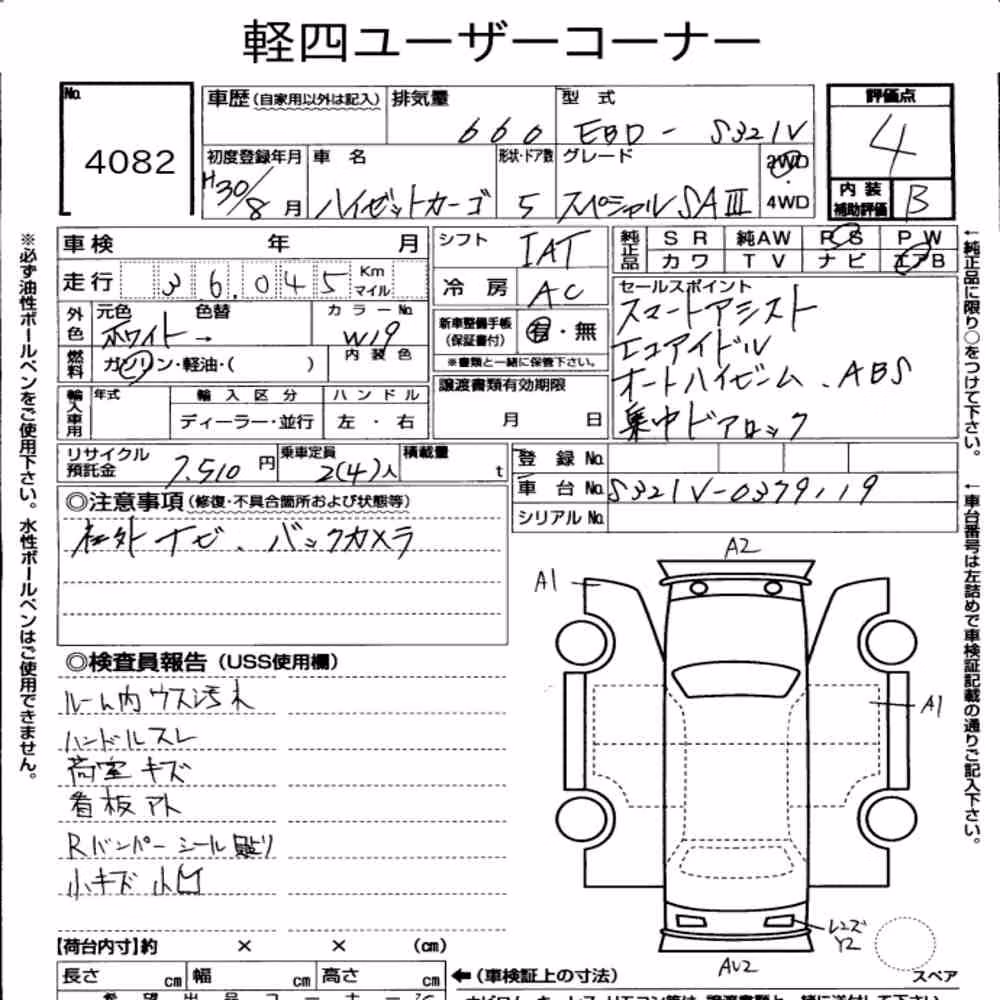 軽四ユーザーコーナー
No.
4082
車歴(自家用以外は記入)
排気量
660
型式
EBD - S321V
評価点
4
内装補助評価
B
初度登録年月
H30/8月
車名
ハイゼットカーゴ
形状・ドア数
5
グレード
スペシャルSAⅢ
2WD
4WD
※必ず油性ボールペンをご使用下さい。水性ボールペンはご使用できません。
車検 年 月
走行 36,045 Km マイル
外色
元色 ホワイト →
色替
カラーNo.
W19
燃料
ガソリン・軽油・( )
内装色
輸入車用
年式
輸入区分
ディーラー・並行
ハンドル
左・右
シフト
IAT
冷房
AC
新車整備手帳(保証書付)
有・無
※書類と一緒に保管下さい。
譲渡書類有効期限
月 日
純正品
SR 純AW PS PW
カワ TV ナビ エアB
セールスポイント
スマートアシスト
エコアイドル
オートハイビーム、ABS
集中ドアロック
←純正品に限り○をつけて下さい。
リサイクル預託金
7,510円
乗車定員
2(4)人
積載量
t
登録No.
車台No. S321V-0379119
シリアルNo.
←車台番号は左詰めで車検証記載の通りご記入下さい。
◎注意事項(修復・不具合箇所および状態等)
社外ナビ、バックカメラ
◎検査員報告(USS使用欄)
ルーム内ウス汚れ
ハンドルスレ
荷室キズ
看板アト
Rバンパーシール貼り
小キズ小凹
A2
A1
A1
レンズ
Y2
AU2
スペア
【荷台内寸】約 × × (cm)
長さ cm 幅 cm 高さ cm
←(車検証上の寸法)
希望出品コーナー